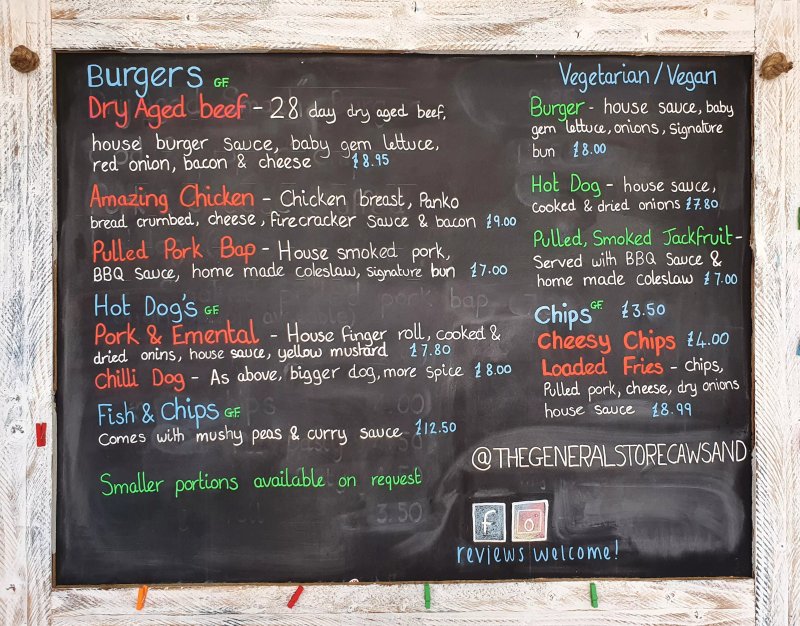 Burgers GF
Dry Aged beef - 28 day dry aged beef,
house burger sauce, baby gem lettuce,
red onion, bacon & cheese £8.95
Amazing Chicken - Chicken breast, Panko
bread crumbed, cheese, firecracker sauce & bacon £9.00
Pulled Pork Bap - House smoked pork,
BBQ sauce, home made coleslaw, signature bun £7.00
Hot Dog's GF
Pork & Emental - House finger roll, cooked &
dried onins, house sauce, yellow mustard £7.80
Chilli Dog - As above, bigger dog, more spice £8.00
Fish & Chips GF
Comes with mushy peas & curry sauce £12.50
Smaller portions available on request
Vegetarian/Vegan
Burger - house sauce, baby
gem lettuce, onions, signature
bun £8.00
Hot Dog - house sauce,
cooked & dried onions £7.80
Pulled, Smoked Jackfruit -
Served with BBQ sauce &
home made coleslaw £7.00
Chips GF £3.50
Cheesy Chips £4.00
Loaded Fries - chips,
Pulled pork, cheese, dry onions
house sauce £8.99
@THEGENERALSTORECAWSAND
f
reviews welcome!